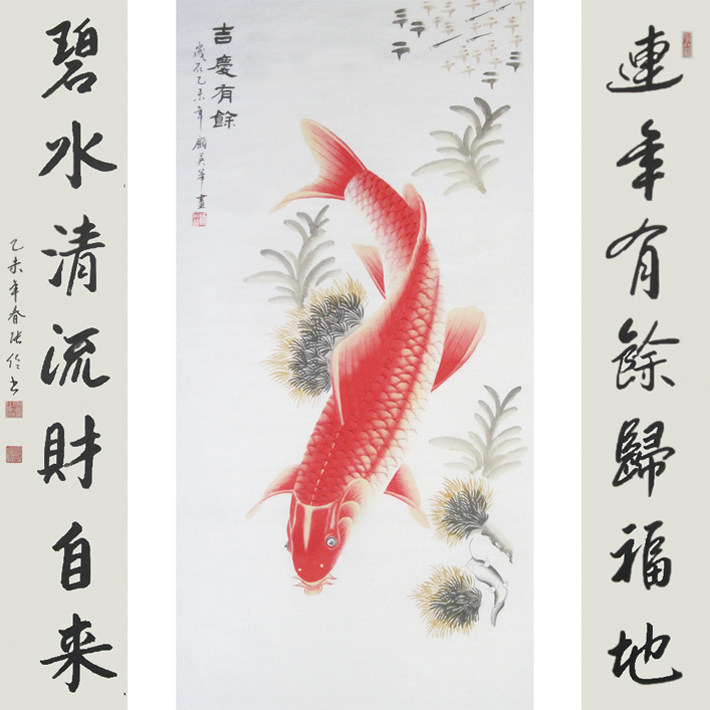 連年有餘歸福地
吉慶有餘
歲在乙未年顧英華畫
碧水清流財自来
乙未年春張伦書